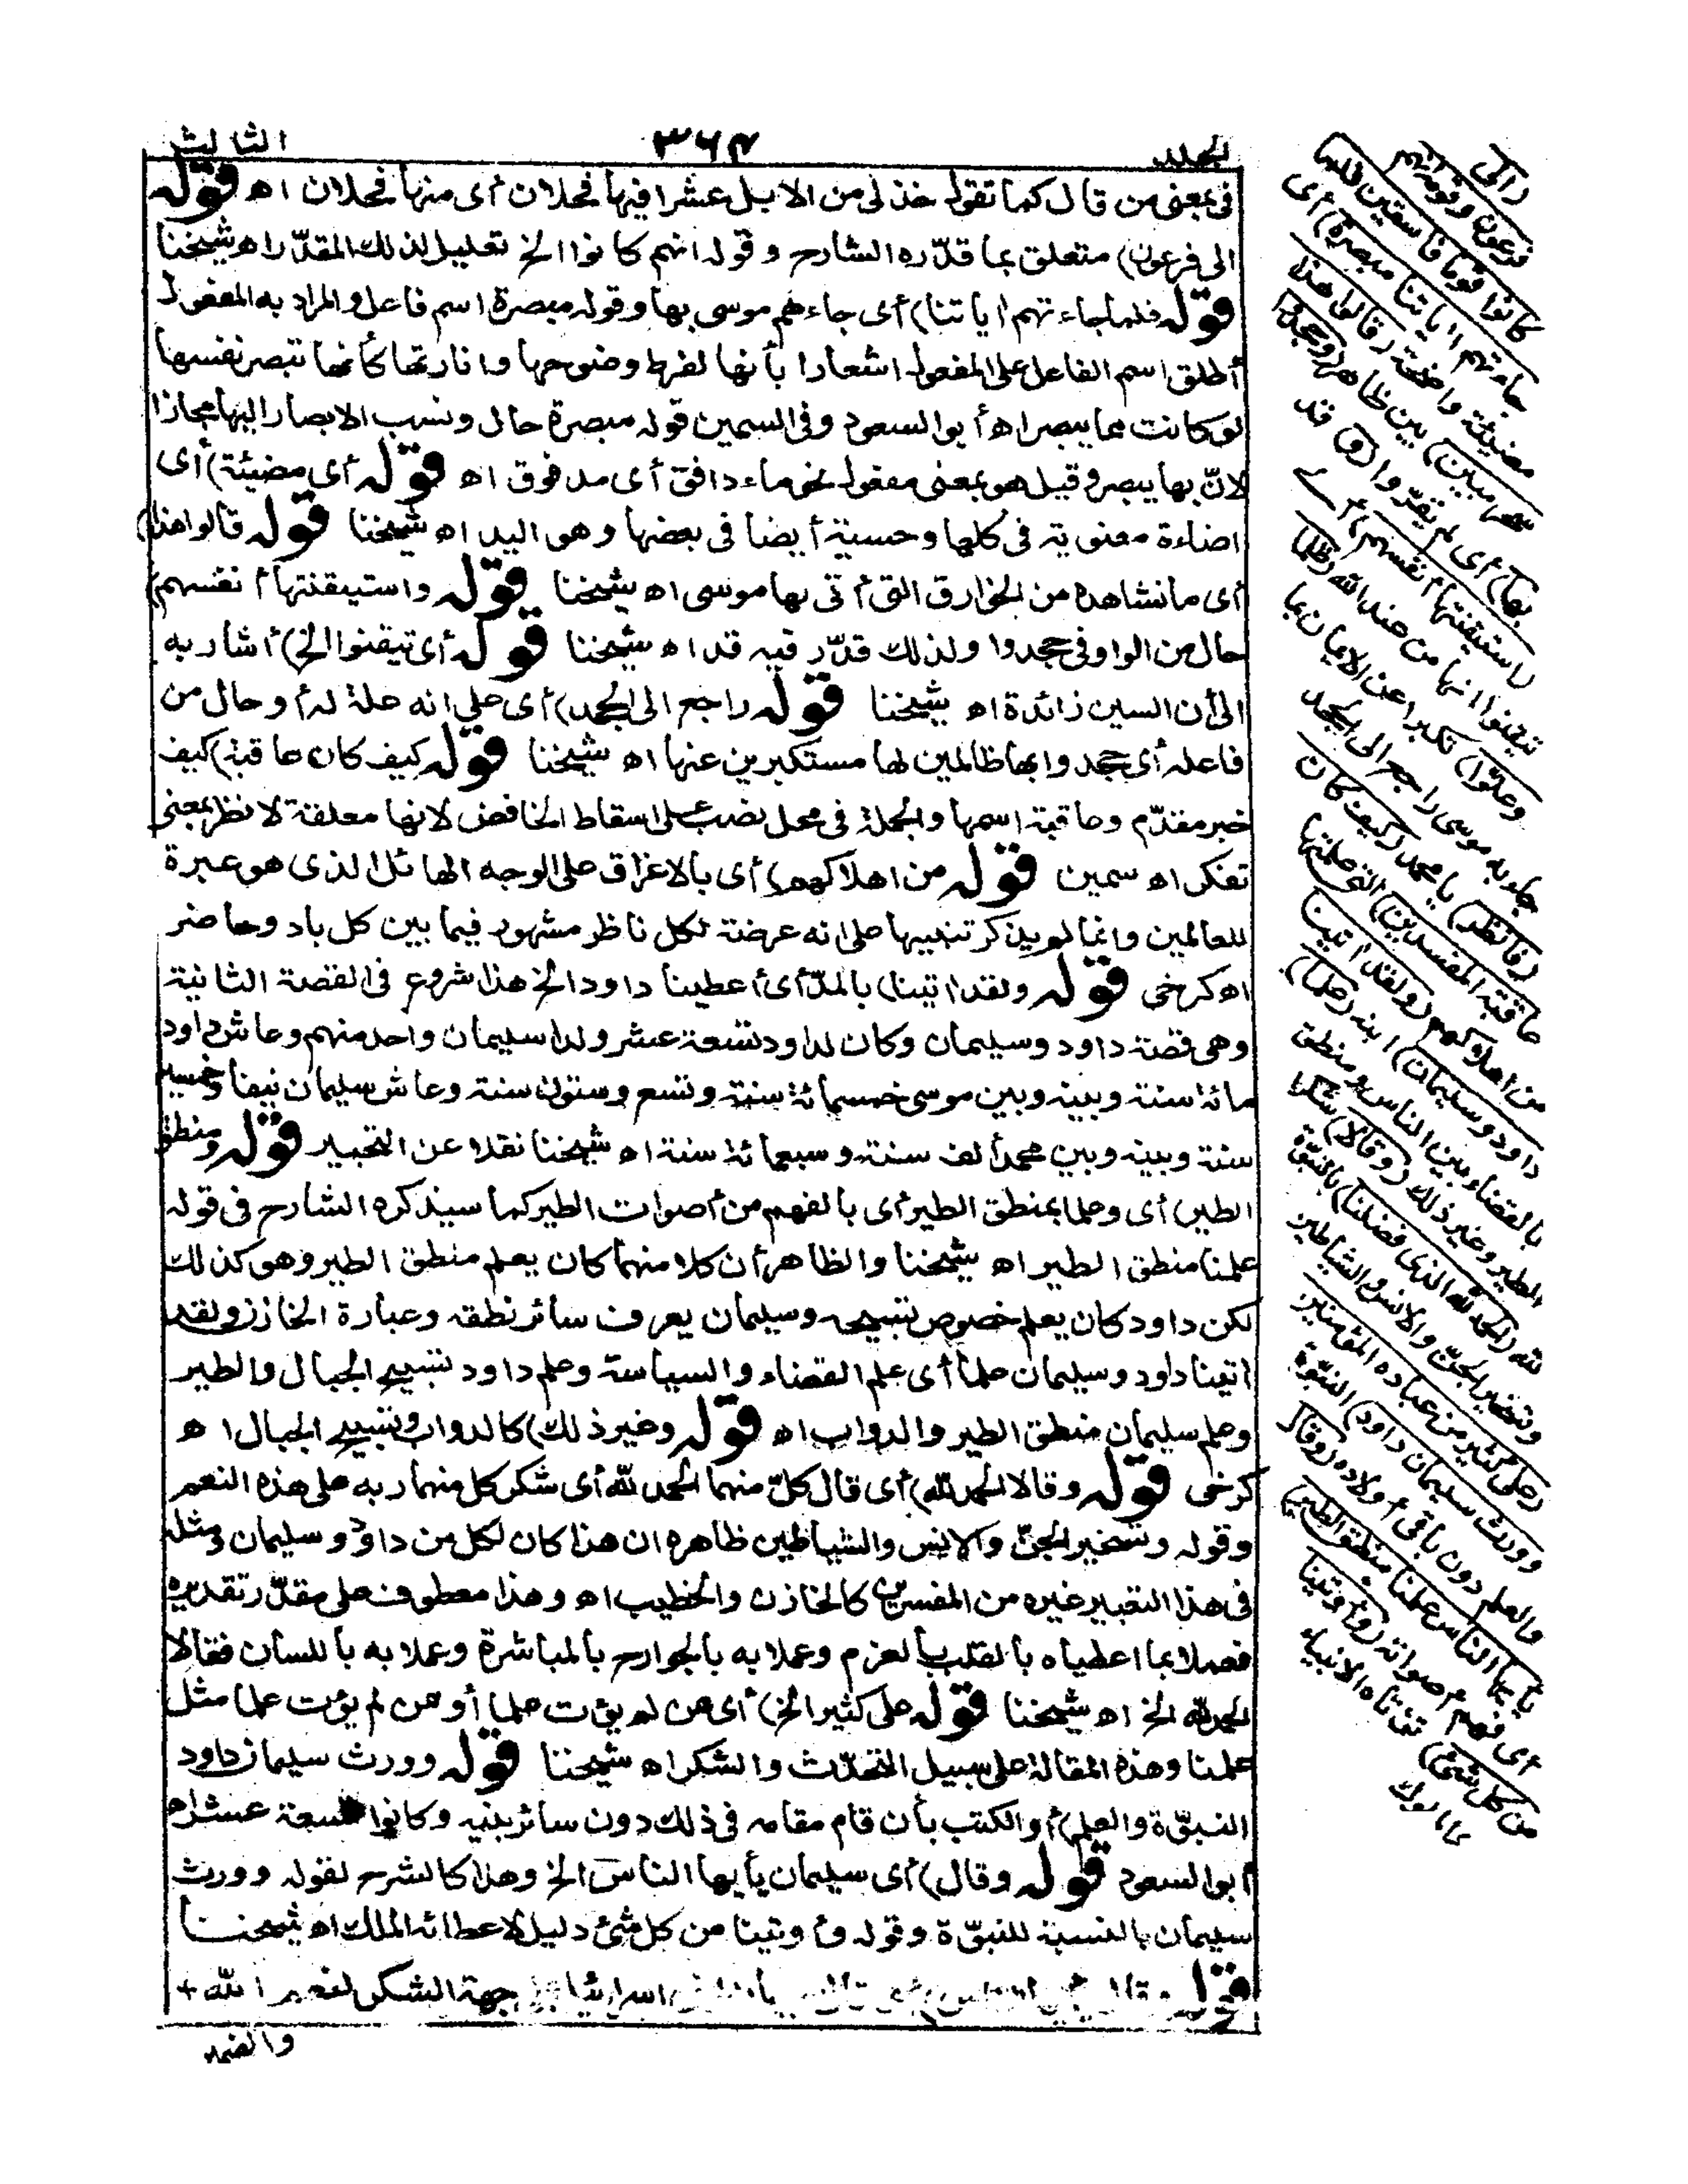 المجلد ٣٦٤ الثالث
فى بمعنى من قال كما تقول خذ لى من الابل عشرا فيها فحلان أى منها فحلان اه قوله
الى فرعون) متعلق بما قدّره الشارح وقوله انهم كانوا الخ تعليل لذلك المقدّر اه شيخنا
قوله فلما جاءتهم اياتنا) أى جاءهم موسى بها وقوله مبصرة اسم فاعل والمراد به المفعول
أطلق اسم الفاعل على المفعول اشعارا بأنها لفرط وضوحها وانارتها كأنها تبصر نفسها
لو كانت مما يبصر اه أبو السعود وفى السمين قوله مبصرة حال ونسب الابصار اليها مجازا
لانّ بها يبصر وقيل هو بمعنى مفعول نحو ماء دافق أى مدفوق اه قوله أى مضيئة) أى
اضاءة معنوية فى كلها وحسية أيضا فى بعضها وهو اليد اه شيخنا قوله قالوا هذا)
أى ما نشاهده من الخوارق التى أتى بها موسى اه شيخنا قوله واستيقنتها أنفسهم)
حال من الواو فى جحدوا ولذلك قدّر فيه قد اه شيخنا قوله أى تيقنوا الخ) أشار به
الى أن السين زائدة اه شيخنا قوله راجع الى الجحد) أى على انه علة له أو حال من
فاعله أى جحدوا بها ظالمين لها مستكبرين عنها اه شيخنا قوله كيف كان عاقبة) كيف
خبر مقدّم وعاقبة اسمها والجملة فى محل نصب على اسقاط الخافض لانها معلقة لانظر بمعنى
تفكر اه سمين قوله من اهلاكهم) أى بالاغراق على الوجه الهائل الذى هو عبرة
للعالمين وانما لم يذكر تنبيها على انه عرضة لكل ناظر مشهور فيما بين كل باد وحاضر
اه كرخى قوله ولقد اتينا) بالمدّ أى أعطينا داود الخ هذا شروع فى القصة الثانية
وهى قصة داود وسليمان وكان لداود تسعة عشر ولدا سليمان واحد منهم وعاش داود
مائة سنة وبينه وبين موسى خمسمائة سنة وتسع وستون سنة وعاش سليمان نيفا وخمسين
سنة وبينه وبين محمد ألف سنة وسبعمائة سنة اه شيخنا نقلا عن التحبير قوله ومنطق
الطير) أى وعلما بمنطق الطير أى بالفهم من أصوات الطير كما سيذكره الشارح فى قوله
علمنا منطق الطير اه شيخنا والظاهر أن كلا منهما كان يعلم منطق الطير وهو كذلك
لكن داود كان يعلم خصوص تسبيحه وسليمان يعرف سائر نطقه وعبارة الخازن ولقد
اتينا داود وسليمان علما أى علم القضاء والسياسة وعلم داود تسبيح الجبال والطير
وعلم سليمان منطق الطير والدواب اه قوله وغير ذلك) كالدواب وتسبيح الجبال اه
كرخى قوله وقالا الحمد لله) أى قال كلّ منهما الحمد لله أى شكر كل منهما ربه على هذه النعم
وقوله وتسخير الجنّ والانس والشياطين ظاهره ان هذا كان لكل من داود وسليمان ومثله
فى هذا التعبير غيره من المفسرين كالخازن والخطيب اه وهذا معطوف على مقدّر تقديره
فعملا بما اعطياه بالقلب بالعزم وعملا به بالجوارح بالمباشرة وعملا به باللسان فقالا
الحمد لله الخ اه شيخنا قوله على كثير الخ) أى ممن لم يؤت علما أو ممن لم يؤت علما مثل
علمنا وهذه المقالة على سبيل التحدّث والشكر اه شيخنا قوله وورث سليمان داود
النبوّة والعلم) أو الكتب بأن قام مقامه فى ذلك دون سائر بنيه وكانوا تسعة عشر اه
أبو السعود قوله وقال) أى سليمان يأيها الناس الخ وهذا كالشرح لقوله وورث
سليمان بالنسبة للنبوّة وقوله وأوتينا من كل شئ دليل لاعطائه الملك اه شيخنا
قوله وقال جهة الشكر لنعم الله +
والضمير
(الى
فرعون وقومه انهم
كانوا قوما فاسقين فلما
جاءتهم اياتنا مبصرة) أى
مضيئة واضحة (قالوا هذا
سحر مبين) بين ظاهر (وجحدوا
بها) أى لم يقرّوا (و) قد
(استيقنتها أنفسهم) أى
تيقنوا انها من عند الله (ظلما
وعلوّا) تكبرا عن الايمان بما
جاء به موسى راجع الى الجحد
(فانظر) يا محمد (كيف كان
عاقبة المفسدين) التى علمتها
من اهلاكهم (ولقد اتينا
داود وسليمان) ابنه (علما)
بالقضاء بين الناس ومنطق
الطير وغير ذلك (وقالا) شكرا
لله (الحمد لله الذى فضلنا) بالنبوّة
وتسخير الجنّ والانس والشياطين
(على كثير من عباده المؤمنين
وورث سليمان داود) النبوّة
والعلم دون باقى أولاده (وقال
يأيها الناس علمنا منطق الطير)
أى فهم أصواته (وأوتينا
من كل شئ) تؤتاه الانبياء
والملوك